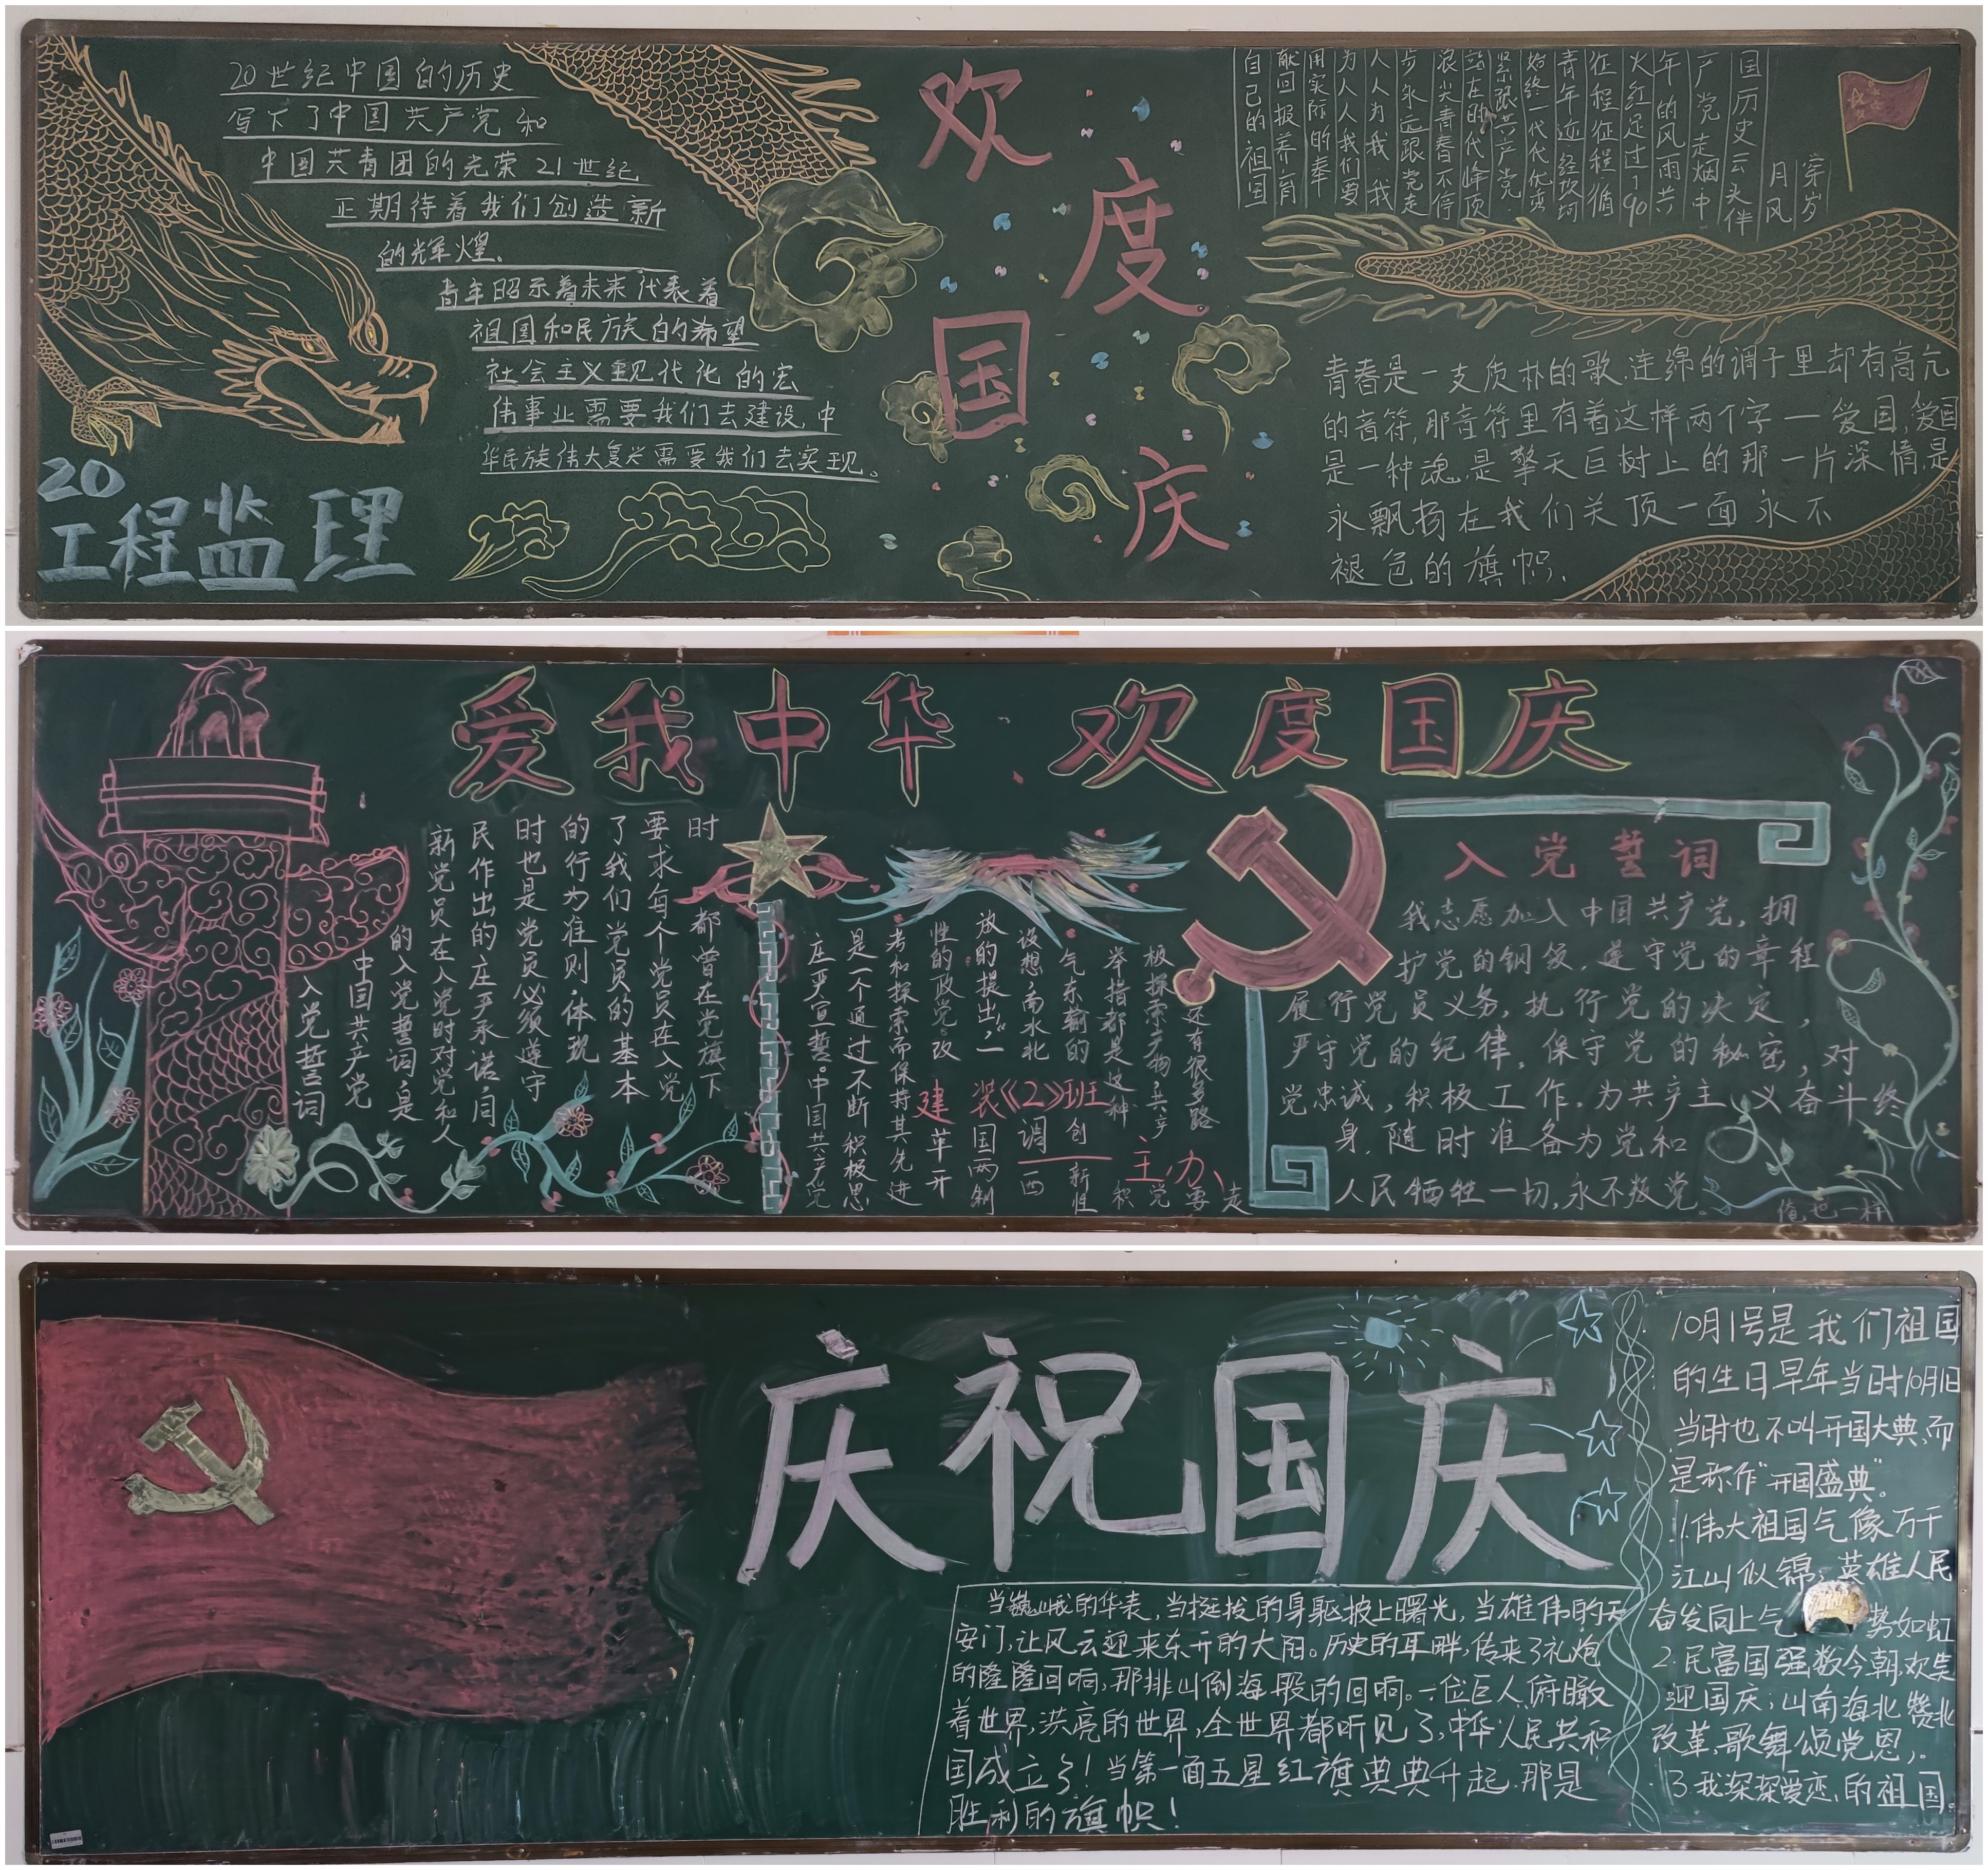 20世纪中国的历史
写下了中国共产党和
中国共青团的光荣21世纪
正期待着我们创造新
的辉煌、
青年昭示着未来代表着
祖国和民族的希望
社会主义现代化的宏
伟事业需要我们去建设,中
华民族伟大复兴需要我们去实现。
20
工程监理
欢度国庆
穿岁
月风
国历史云头伴
产党走烟中
年的风雨共
火红走过了90
征程征程循
青年途经坎坷
始终一代代优秀
紧跟共产党
站在时代峰顶
浪尖青春不停
步永远跟党走
人人为我我
为人人我们要
用实际的奉
献回报养育
自己的祖国
青春是一支质朴的歌,连绵的调子里却有高亢
的音符,那音符里有着这样两个字一爱国,爱国
是一种魂,是擎天巨树上的那一片深情,是
永飘扬在我们关顶一面永不
褪色的旗帜.
爱我中华、欢度国庆
入党誓词
中国共产党
的入党誓词,是
新党员在入党时对党和人
民作出的庄严承诺,同
时也是党员必须遵守
的行为准则,体现
了我们党员的基本
要求每个党员在入党
时
都曾在党旗下
庄严宣誓。中国共产党
是一个通过不断积极思
考和探索而保持其先进
性的政党。改革开
放的提出,"一国两制
设想,南水北调西
气东输的创新性
举措都是这种积
极探索产物,共产党
还有很多路要走
建装《2》班
主办
入党誓词
我志愿加入中国共产党,拥
护党的钢领,遵守党的章程
履行党员义务,执行党的决定,
严守党的纪律,保守党的秘密,对
党忠诚,积极工作,为共产主义奋斗终
身,随时准备为党和
人民牺牲一切,永不叛党。
俺也一样
庆祝国庆
当巍峨的华表,当挺拔的身躯披上曙光,当雄伟的天
安门,让风云迎来东升的太阳。历史的耳畔,传来了礼炮
的隆隆回响,那排山倒海般的回响。一位巨人俯瞰
着世界,洪亮的世界,全世界都听见了,中华人民共和
国成立了!当第一面五星红旗典典升起,那是
胜利的旗帜!
10月1号是我们祖国
的生日早年当时10月1日
当时也不叫开国大典,而
是称作"开国盛典"。
1.伟大祖国气像万千
江山似锦;英雄人民
奋发向上气势如虹
2.民富国强数今朝,欢笑
迎国庆;山南海北赞北
改革,歌舞颂党恩,。
3.我深深爱恋,的祖国.